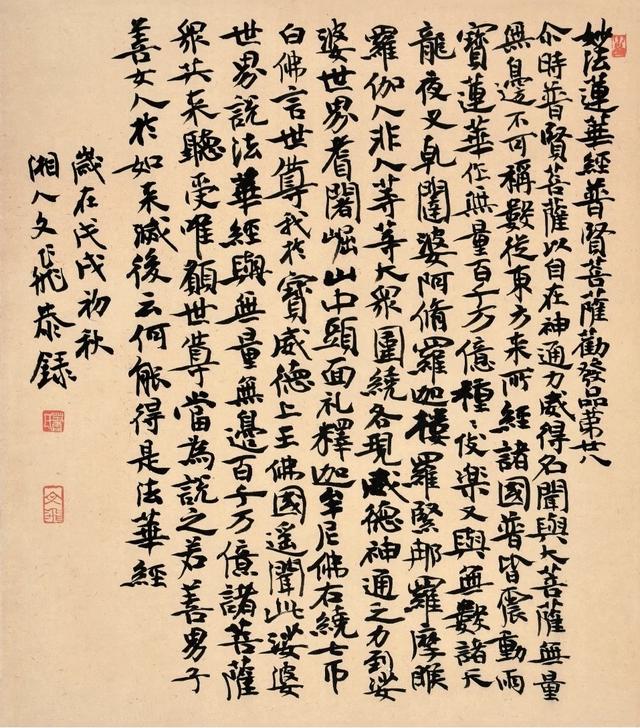 妙法蓮華經普賢菩薩勸發品第廿八
尒時普賢菩薩以自在神通力威得名聞與大菩薩無量
無邊不可稱數從東方来所經諸國普皆震動雨
寶蓮華作無量百千万億種〻伎樂又與無數諸天
龍夜叉乹闥婆阿脩羅迦樓羅緊那羅摩睺
羅伽人非人等等大衆圍繞各現威德神通之力到娑
婆世界耆闍崛山中頭面礼釋迦牟尼佛右繞七帀
白佛言世尊我於寶威德上王佛國遥聞此娑婆
世界說法華經與無量無邊百千万億諸菩薩
衆共来聽受唯願世尊當為說之若善男子
善女人於如来滅後云何能得是法華經
歲在戊戌初秋
湘人文飛恭録